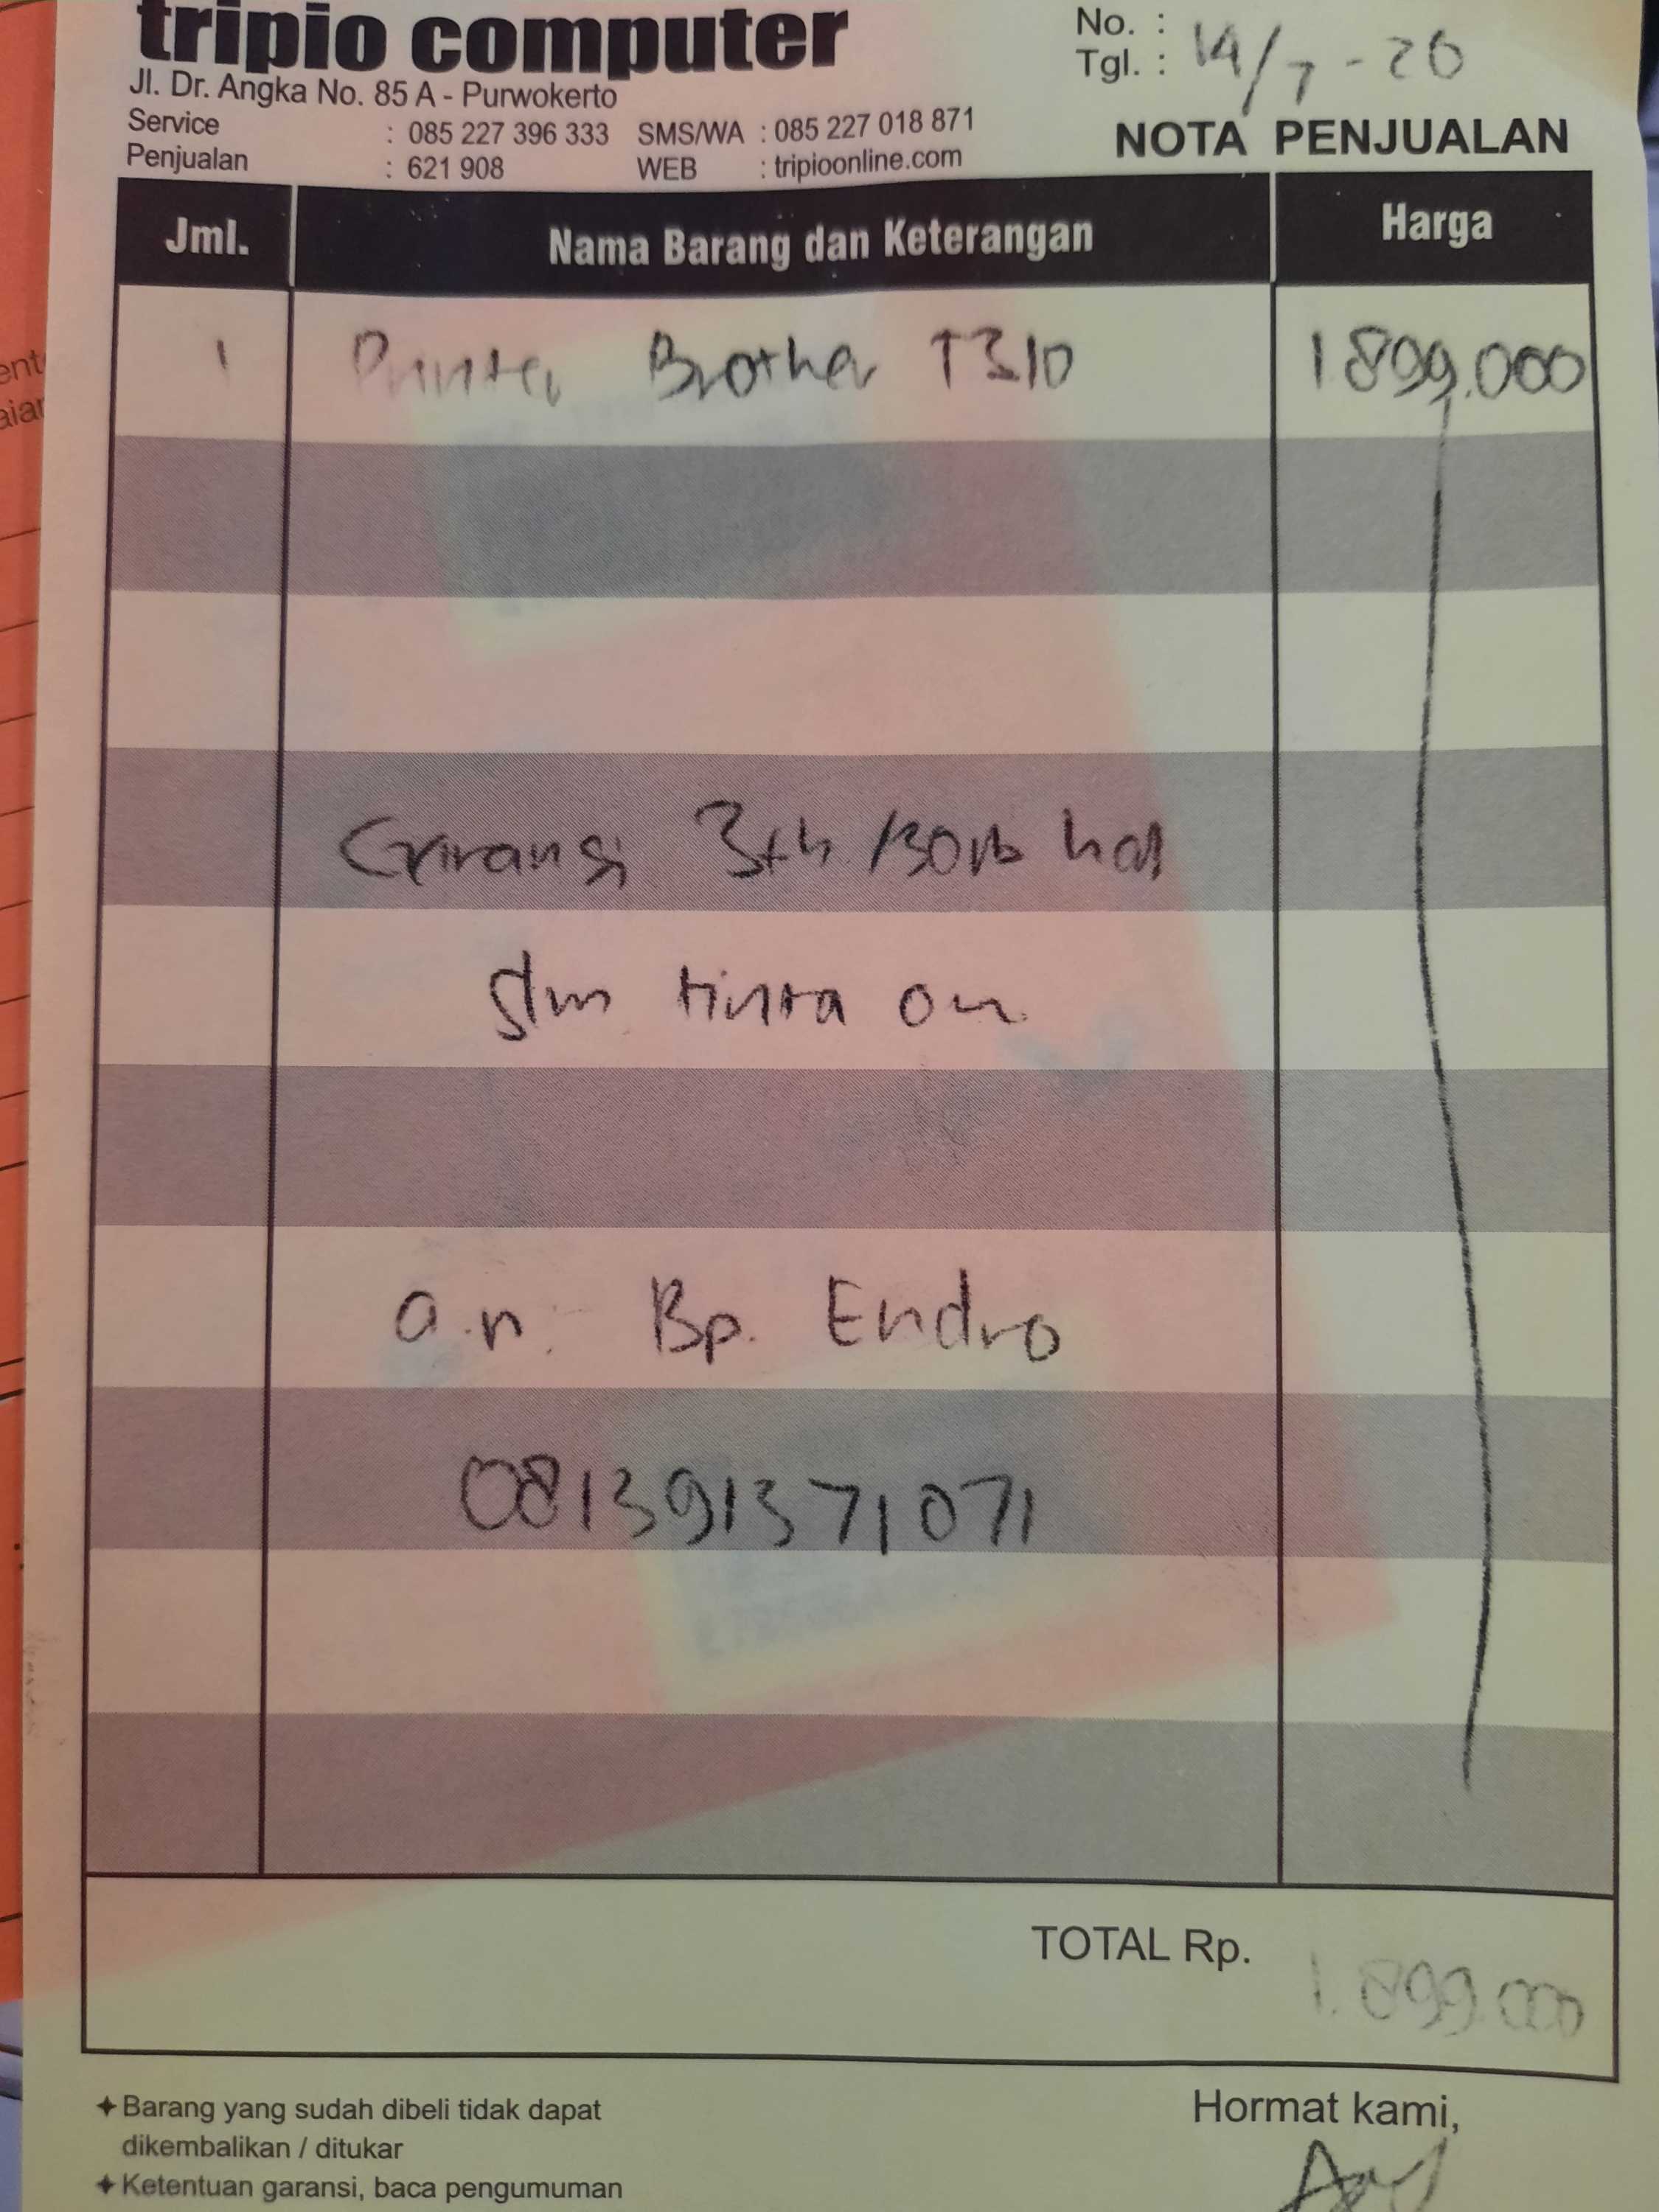 tripio computer
No. :
Jl. Dr. Angka No. 85 A - Purwokerto
Tgl. : 14/7-20
Service : 085 227 396 333 SMS/WA : 085 227 018 871
Penjualan : 621 908 WEB : tripioonline.com
NOTA PENJUALAN
Jml. Nama Barang dan Keterangan Harga
1 Printer Brother T310 1899.000
Garansi 3th /30rb hal
Slm tinta ori
a.n. Bp. Endro
081391371071
TOTAL Rp. 1.899.000
✦ Barang yang sudah dibeli tidak dapat
dikembalikan / ditukar
✦ Ketentuan garansi, baca pengumuman
Hormat kami,